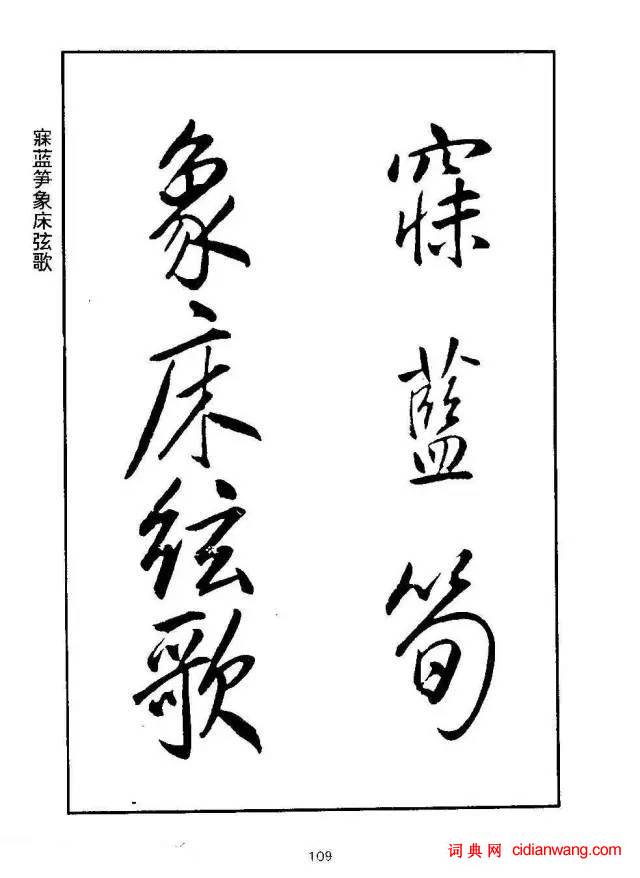 寐藍筍
象床絃歌
寐蓝笋象床弦歌
109
词典网 cidianwang.com